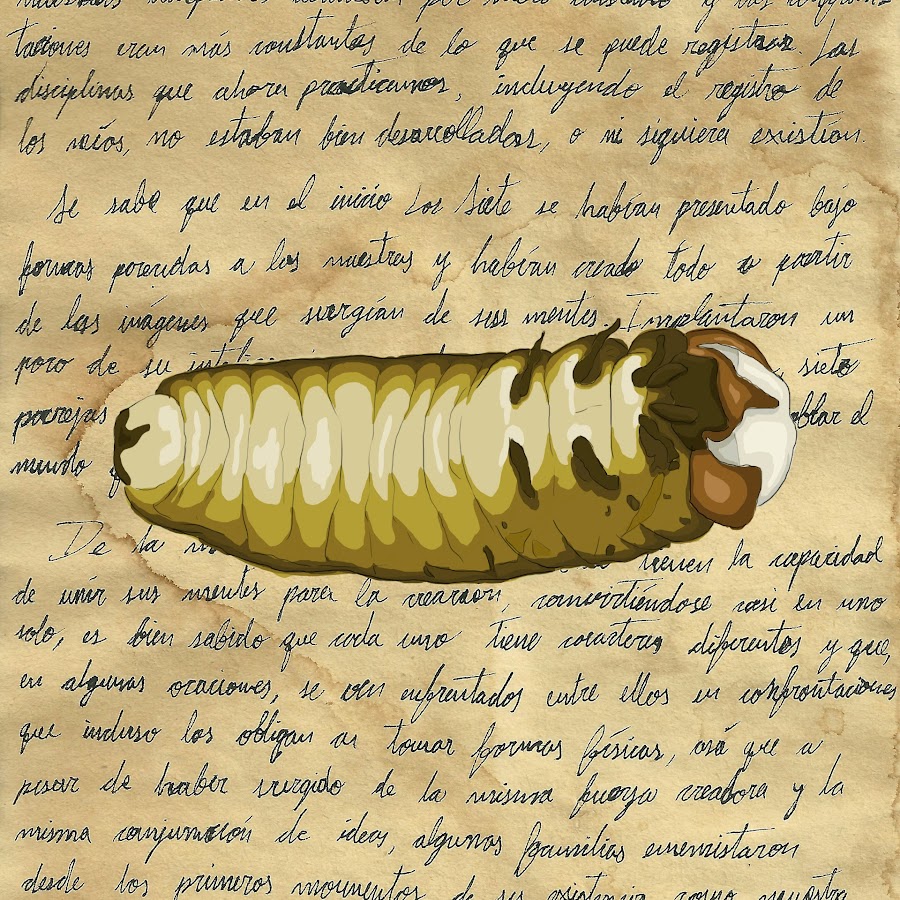 taciones eran más constantes de lo que se puede registrar. Las
disciplinas que ahora practicamos, incluyendo el registro de
los mitos, no estaban bien desarrolladas, o ni siquiera existían.
Se sabe que en el inicio Los Siete se habían presentado bajo
formas parecidas a las nuestras y habían creado todo a partir
de las imágenes que surgían de sus mentes. Implantaron un
poco de su siete
parejas poblar el
mundo
De la tienen la capacidad
de unir sus mentes para la creación, convirtiéndose casi en uno
solo, es bien sabido que cada uno tiene caracteres diferentes y que,
en algunas ocasiones, se ven enfrentados entre ellos en confrontaciones
que incluso los obligan a tomar formas físicas, así que a
pesar de haber surgido de la misma fuerza creadora y la
misma conjunción de ideas, algunas familias enemistaron
desde los primeros momentos de su existencia como